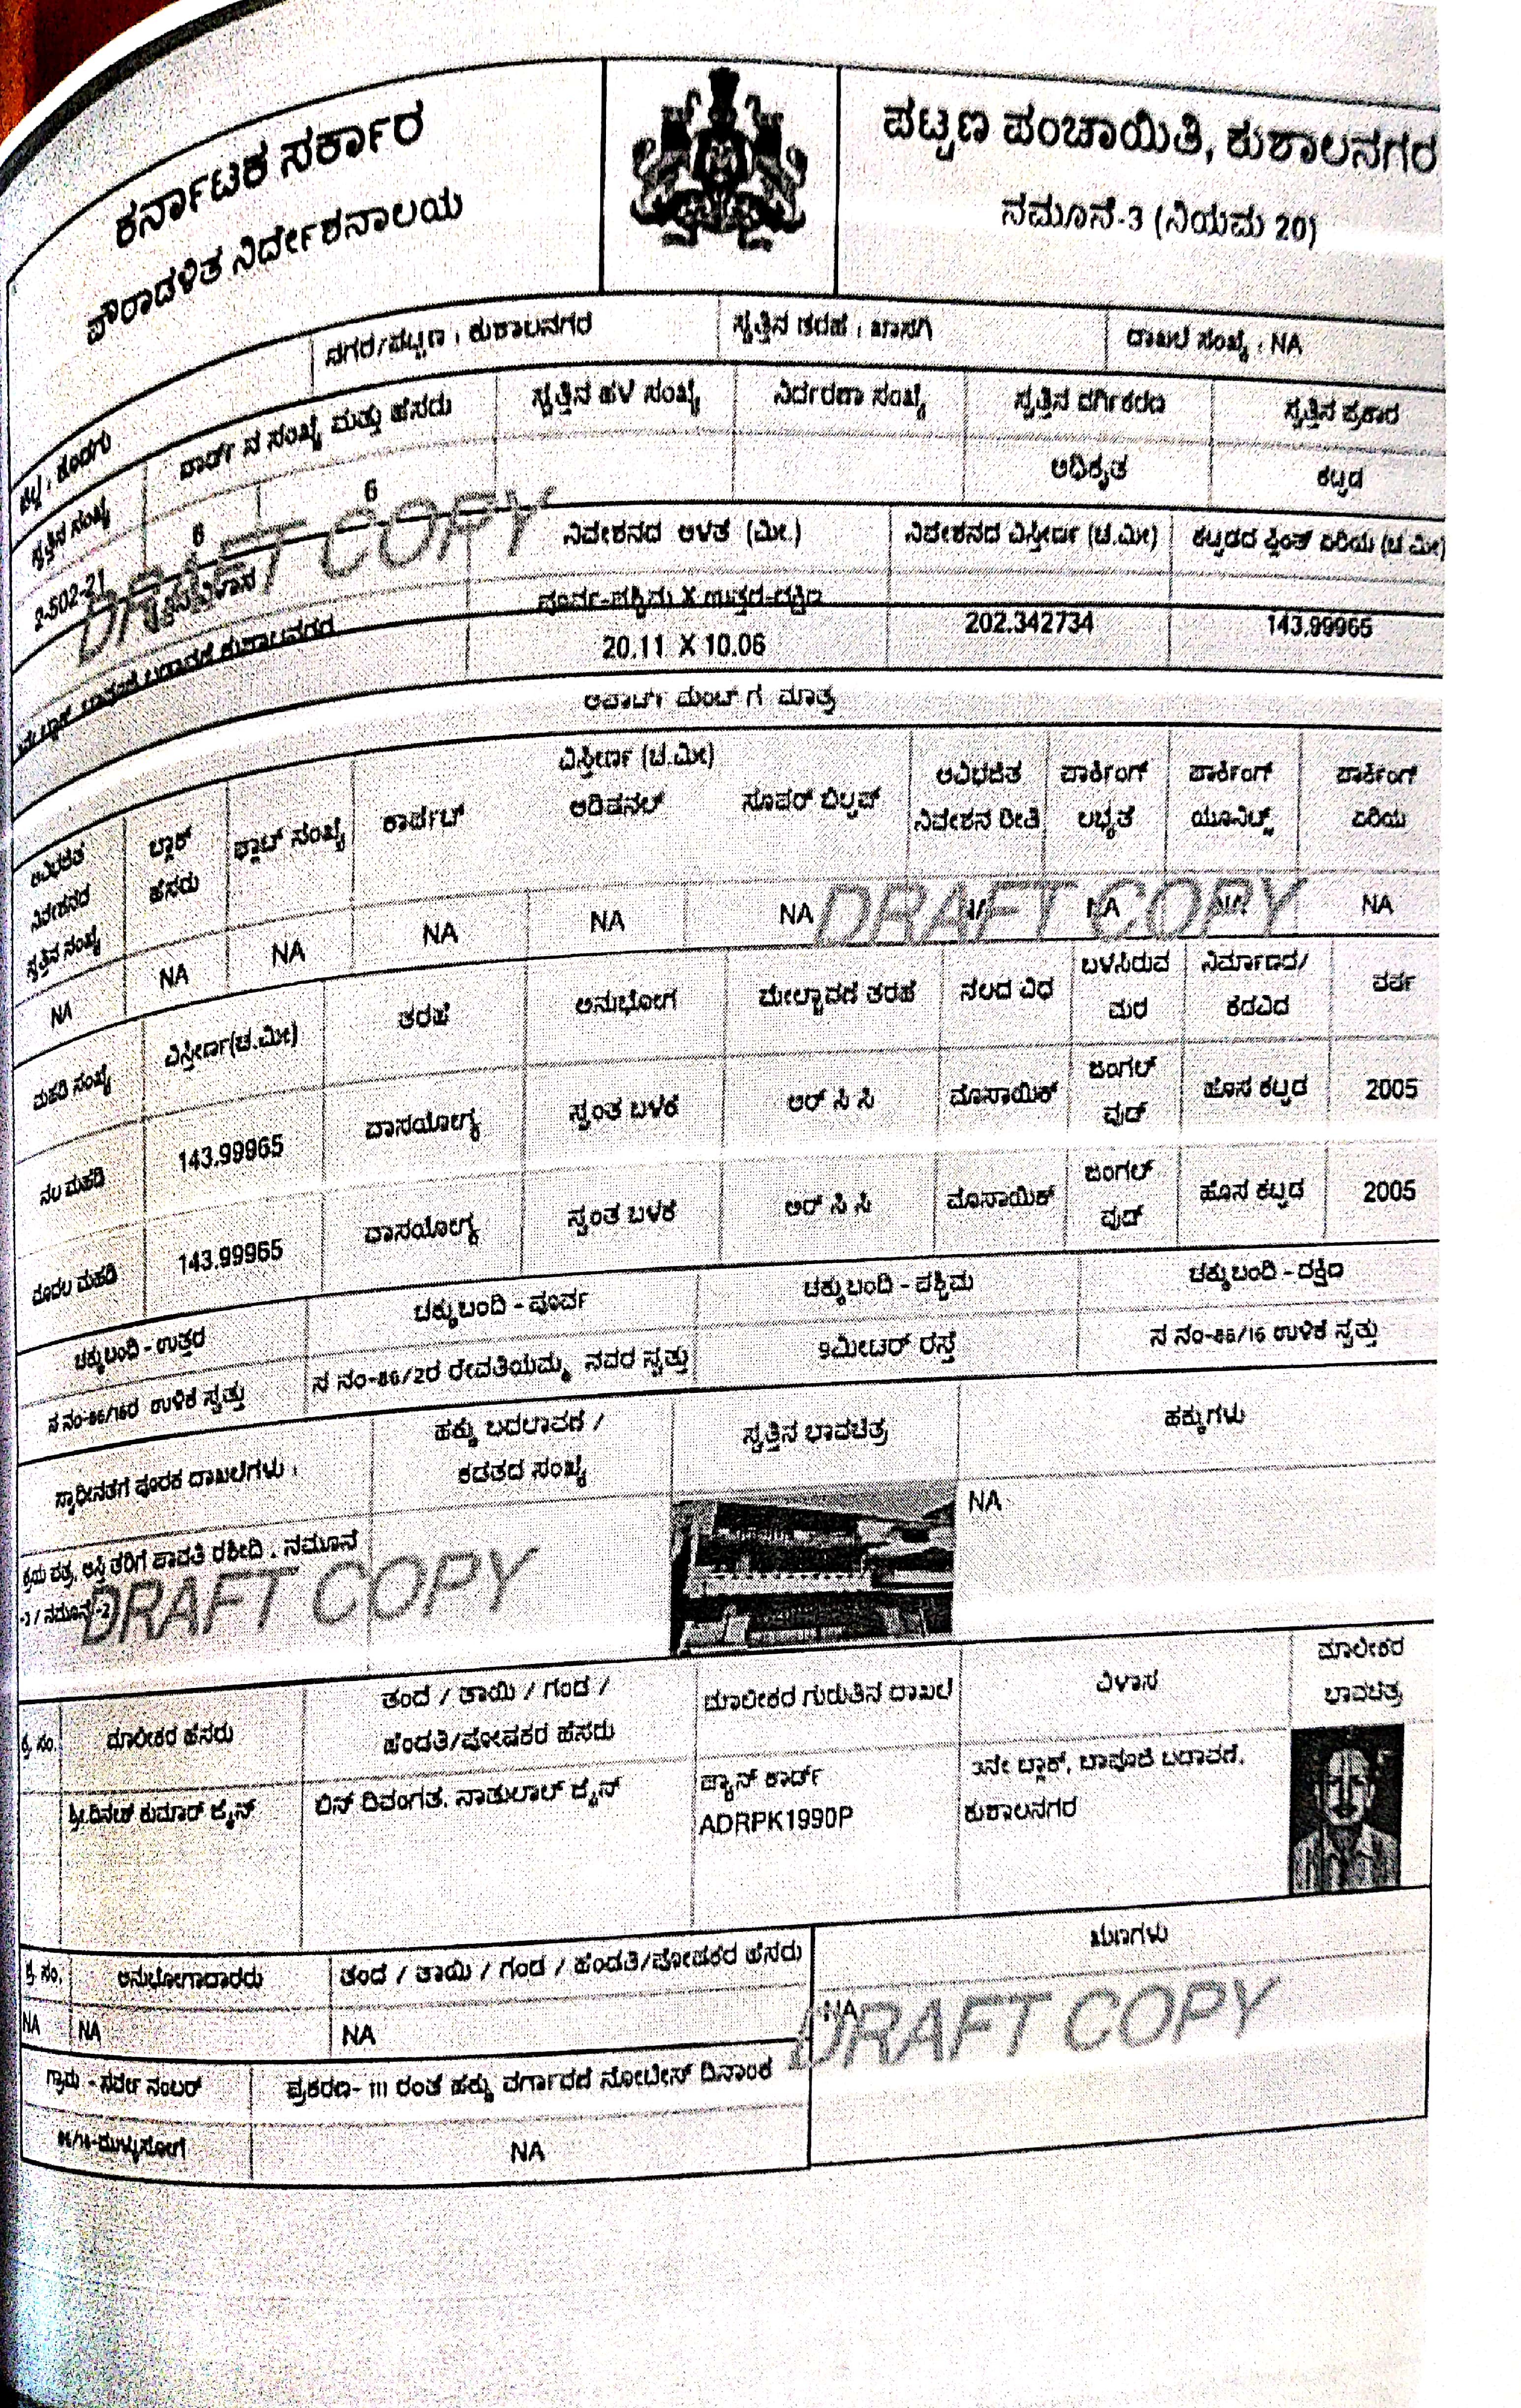 ಕರ್ನಾಟಕ ಸರ್ಕಾರ
ಪೌರಾಡಳಿತ ನಿರ್ದೇಶನಾಲಯ
ಪಟ್ಟಣ ಪಂಚಾಯಿತಿ, ಕುಶಾಲನಗರ
ನಮೂನೆ-3 (ನಿಯಮ 20)
ನಗರ/ಪಟ್ಟಣ : ಕುಶಾಲನಗರ ಸ್ವತ್ತಿನ ತರಹ : ಖಾಸಗಿ ದಾಖಲೆ ಸಂಖ್ಯೆ : NA
ಸ್ವತ್ತಿನ ಸಂಖ್ಯೆ ವಾರ್ಡ್ ನ ಸಂಖ್ಯೆ ಮತ್ತು ಹೆಸರು ಸ್ವತ್ತಿನ ಹಳೆ ಸಂಖ್ಯೆ ನಿರ್ಧರಣಾ ಸಂಖ್ಯೆ ಸ್ವತ್ತಿನ ವರ್ಗೀಕರಣ ಸ್ವತ್ತಿನ ಪ್ರಕಾರ
2-502-21 6 6 ಅಧಿಕೃತ ಕಟ್ಟಡ
DRAFT COPY
ನಿವೇಶನದ ಅಳತೆ (ಮೀ.) ನಿವೇಶನದ ವಿಸ್ತೀರ್ಣ (ಚ.ಮೀ) ಕಟ್ಟಡದ ಪ್ಲಿಂತ್ ಏರಿಯ (ಚ ಮೀ)
ಪೂರ್ವ-ಪಶ್ಚಿಮ X ಉತ್ತರ-ದಕ್ಷಿಣ
20.11 X 10.06 202.342734 143.99965
ಅಪಾರ್ಟ್ ಮೆಂಟ್ ಗೆ ಮಾತ್ರ
ವಿಸ್ತೀರ್ಣ (ಚ.ಮೀ)
ಅವಿಭಜಿತ ನಿವೇಶನದ ಸ್ವತ್ತಿನ ಸಂಖ್ಯೆ ಬ್ಲಾಕ್ ಹೆಸರು ಫ್ಲಾಟ್ ಸಂಖ್ಯೆ ಕಾರ್ಪೆಟ್ ಅಡಿಷನಲ್ ಸೂಪರ್ ಬಿಲ್ಟಪ್ ಅವಿಭಜಿತ ನಿವೇಶನ ರೀತಿ ಪಾರ್ಕಿಂಗ್ ಲಭ್ಯತೆ ಪಾರ್ಕಿಂಗ್ ಯೂನಿಟ್ಸ್ ಪಾರ್ಕಿಂಗ್ ಏರಿಯ
NA NA NA NA NA NA NA NA NA NA
DRAFT COPY
ಮಹಡಿ ಸಂಖ್ಯೆ ವಿಸ್ತೀರ್ಣ(ಚ.ಮೀ) ತರಹೆ ಅನುಭೋಗ ಮೇಲ್ಛಾವಣಿ ತರಹ ನೆಲದ ವಿಧ ಬಳಸಿರುವ ಮರ ನಿರ್ಮಾಣದ/ ಕೆಡವಿದ ವರ್ಷ
ನೆಲ ಮಹಡಿ 143.99965 ವಾಸಯೋಗ್ಯ ಸ್ವಂತ ಬಳಕೆ ಆರ್ ಸಿ ಸಿ ಮೊಸಾಯಿಕ್ ಜಂಗಲ್ ವುಡ್ ಹೊಸ ಕಟ್ಟಡ 2005
ಮೊದಲ ಮಹಡಿ 143.99965 ವಾಸಯೋಗ್ಯ ಸ್ವಂತ ಬಳಕೆ ಆರ್ ಸಿ ಸಿ ಮೊಸಾಯಿಕ್ ಜಂಗಲ್ ವುಡ್ ಹೊಸ ಕಟ್ಟಡ 2005
ಚಕ್ಕುಬಂದಿ - ಉತ್ತರ ಚಕ್ಕುಬಂದಿ - ಪೂರ್ವ ಚಕ್ಕುಬಂದಿ - ಪಶ್ಚಿಮ ಚಕ್ಕುಬಂದಿ - ದಕ್ಷಿಣ
ಸ ನಂ-86/16ರ ಉಳಿಕೆ ಸ್ವತ್ತು ಸ ನಂ-86/2ರ ರೇವತಿಯಮ್ಮ ನವರ ಸ್ವತ್ತು 9ಮೀಟರ್ ರಸ್ತೆ ಸ ನಂ-86/16 ಉಳಿಕೆ ಸ್ವತ್ತು
ಸ್ವಾಧೀನತೆಗೆ ಪೂರಕ ದಾಖಲೆಗಳು : ಹಕ್ಕು ಬದಲಾವಣೆ / ಕಡತದ ಸಂಖ್ಯೆ ಸ್ವತ್ತಿನ ಭಾವಚಿತ್ರ ಹಕ್ಕುಗಳು
ಕ್ರಯ ಪತ್ರ, ಆಸ್ತಿ ತೆರಿಗೆ ಪಾವತಿ ರಶೀದಿ , ನಮೂನೆ NA
-3 / ನಮೂನೆ-2
DRAFT COPY
ಕ್ರ. ಸಂ. ಮಾಲೀಕರ ಹೆಸರು ತಂದೆ / ತಾಯಿ / ಗಂಡ / ಹೆಂಡತಿ/ಪೋಷಕರ ಹೆಸರು ಮಾಲೀಕರ ಗುರುತಿನ ದಾಖಲೆ ವಿಳಾಸ ಮಾಲೀಕರ ಭಾವಚಿತ್ರ
ಶ್ರೀ.ದಿನೇಶ್ ಕುಮಾರ್ ಜೈನ್ ಬಿನ್ ದಿವಂಗತ. ನಾತುಲಾಲ್ ಜೈನ್ ಪ್ಯಾನ್ ಕಾರ್ಡ್ 3ನೇ ಬ್ಲಾಕ್, ಬಾಪೂಜಿ ಬಡಾವಣೆ,
ADRPK1990P ಕುಶಾಲನಗರ
ಕ್ರ. ಸಂ. ಅನುಭೋಗದಾರರು ತಂದೆ / ತಾಯಿ / ಗಂಡ / ಹೆಂಡತಿ/ಪೋಷಕರ ಹೆಸರು ಋಣಗಳು
NA NA NA NA
DRAFT COPY
ಗ್ರಾಮ - ಸರ್ವೆ ನಂಬರ್ ಪ್ರಕರಣ- III ರಂತೆ ಹಕ್ಕು ವರ್ಗಾವಣೆ ನೋಟೀಸ್ ದಿನಾಂಕ
86/16-ಮುಳ್ಳುಸೋಗೆ NA